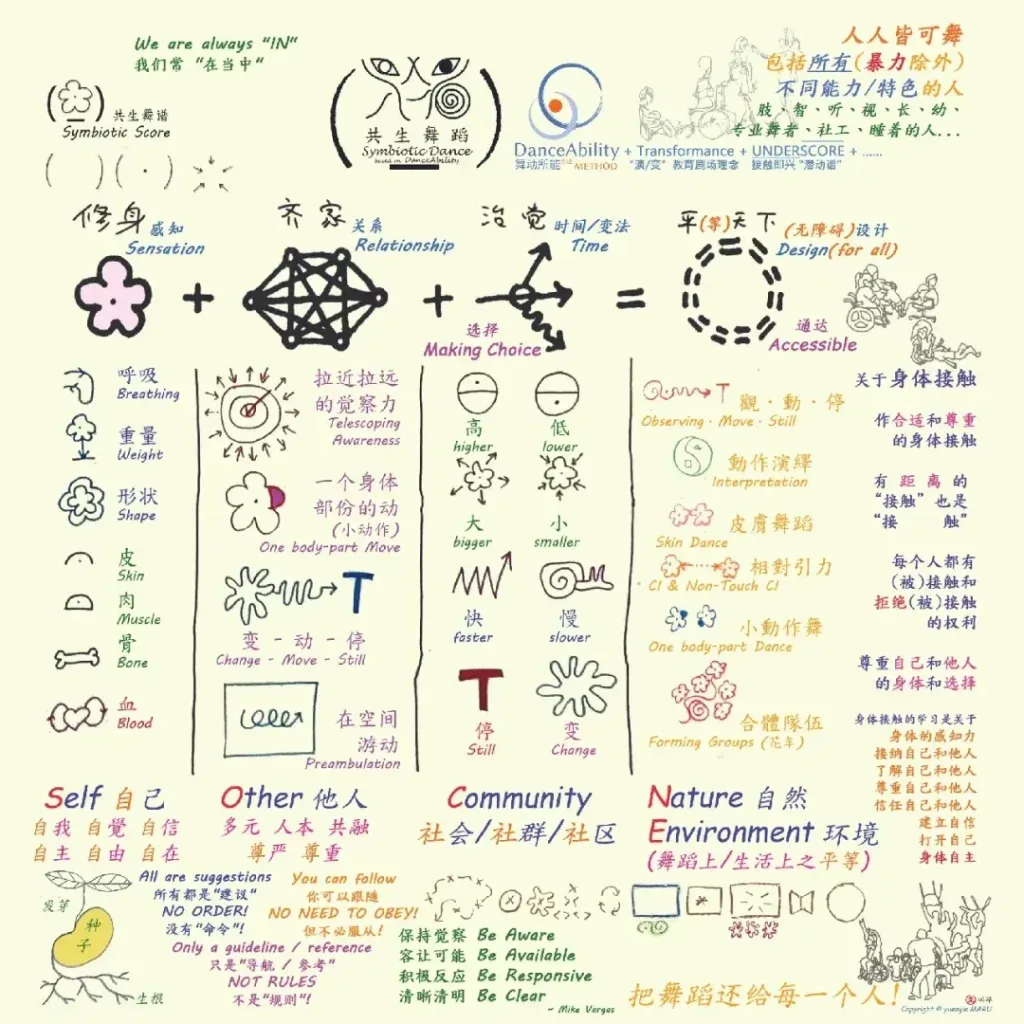 We are always "IN"
我们常 "在当中"
共生舞谱
Symbiotic Score
共生舞蹈
Symbiotic Dance
based on DanceAbility
人人皆可舞
包括所有(暴力除外)
不同能力/特色的人
肢、智、听、视、长、幼、
专业舞者、社工、睡着的人...
DanceAbility + Transformance + UNDERSCORE + ......
舞动所能 THE METHOD "演/变" 教育剧场理念 接触即兴 "潜动谱"
修身 感知
Sensation
齐家 关系
Relationship
治觉 时间/变法
Time
平(等)天下 (无障碍)设计
Design(for all)
+
+
=
选择
Making Choice
通达
Accessible
呼吸
Breathing
重量
Weight
形状
Shape
皮
Skin
肉
Muscle
骨
Bone
血
Blood
拉近拉远
的觉察力
Telescoping
Awareness
一个身体
部份的动
(小动作)
One body-part Move
T
变 - 动 - 停
Change - Move - Still
在空间
游动
Preambulation
高
higher
低
lower
大
bigger
小
smaller
快
faster
慢
slower
T
停
Still
变
Change
T
觀・動・停
Observing・Move・Still
動作演繹
Interpretation
皮膚舞蹈
Skin Dance
相對引力
CI & Non-Touch CI
小動作舞
One body-part Dance
合體隊伍
Forming Groups (花车)
关于身体接触
作合适和尊重
的身体接触
有 距 离 的
"接触"也是
"接 触"
每个人都有
(被)接触和
拒绝(被)接触
的权利
尊重自己和他人
的身体和选择
身体接触的学习是关于
身体的感知力
接纳自己和他人
了解自己和他人
尊重自己和他人
信任自己和他人
建立自信
打开自己
身体自主
Self 自己
自我 自覺 自信
自主 自由 自在
Other 他人
多元 人本 共融
尊严 尊重
Community
社会/社群/社区
Nature 自然
Environment 环境
(舞蹈上/生活上之平等)
发芽
种
子
生根
All are suggestions
所有都是"建议"
NO ORDER!
没有"命令"!
You can follow
你可以跟随
NO NEED TO OBEY!
但不必服从!
Only a guideline / reference
只是"导航 / 参考"
NOT RULES
不是"规则"!
保持觉察 Be Aware
容让可能 Be Available
积极反应 Be Responsive
清晰清明 Be Clear
~ Mike Vargas
把舞蹈还给每一个人!
Copyright © yuenjie MARU